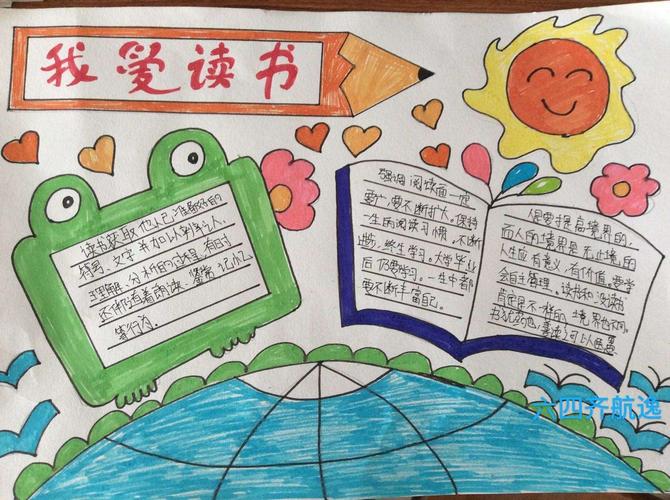 我爱读书
读书获取他人已准备好的
符号、文字并加以辨认、
理解、分析的过程，有时
还伴有着朗读、鉴赏、记忆
等行为。
强调阅读面一定
要广，要不断扩大。保持
一生的阅读习惯，不断
进步，终生学习。大学毕业
后仍要学习。一生中都
要不断丰富自己。
人是要提高境界的，
而人的境界是无止境的
人生应有意义，有价值，要学
会自主管理。读书和没读书
肯定是不一样的，境界也不同。
书犹药也，善读之可以医愚
六四齐航逸